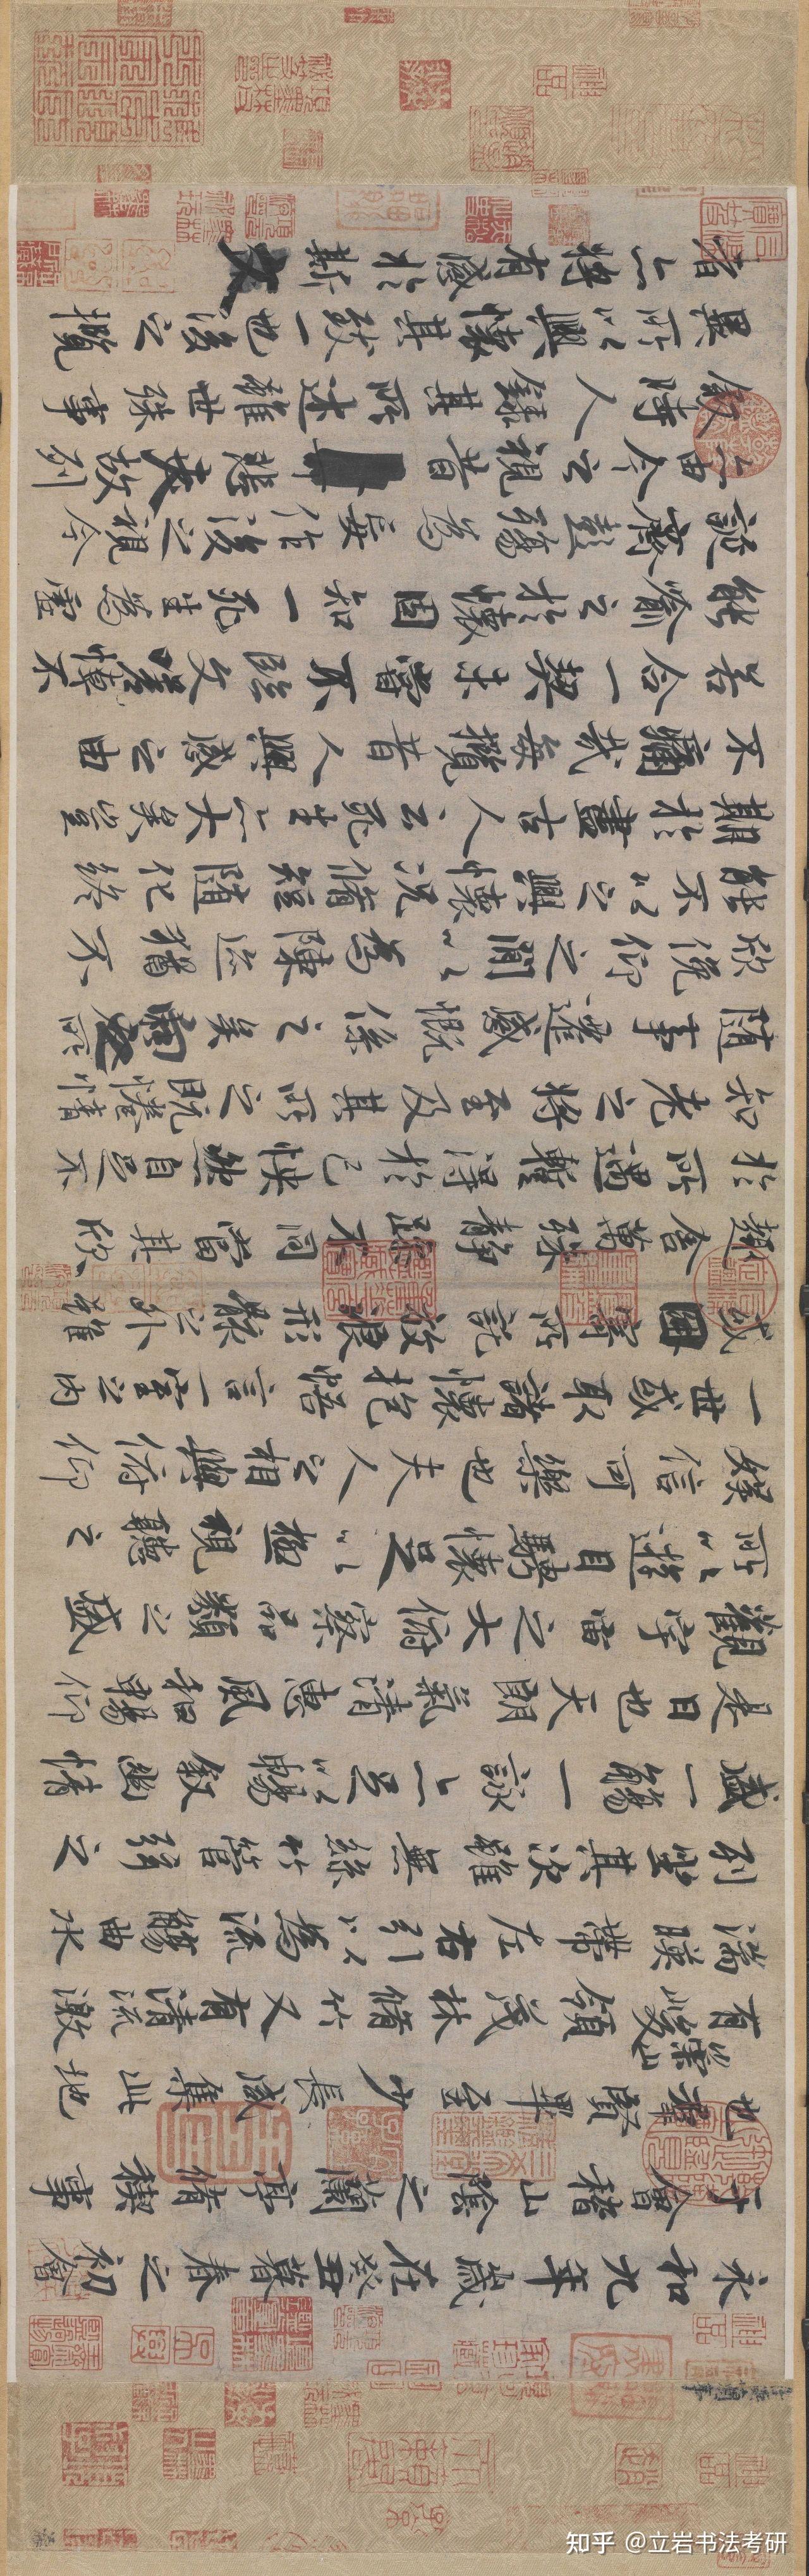 永和九年歲在癸丑暮春之初會
于會稽山陰之蘭亭脩稧事
也群賢畢至少長咸集此地
有崇山峻領茂林脩竹又有清流激
湍暎帶左右引以為流觴曲水
列坐其次雖無絲竹管弦之
盛一觴一詠亦足以暢敘幽情
是日也天朗氣清惠風和暢仰
觀宇宙之大俯察品類之盛
所以遊目騁懷足以極視聽之
娛信可樂也夫人之相與俯仰
一世或取諸懷抱悟言一室之內
或因寄所託放浪形骸之外雖
趣舍萬殊靜躁不同當其欣
於所遇蹔得於己怏然自足不
知老之將至及其所之既惓情
隨事遷感慨係之矣向之所
欣俛仰之閒以為陳迹猶不
能不以之興懷況脩短隨化終
期於盡古人云死生亦大矣豈
不痛哉每攬昔人興感之由
若合一契未嘗不臨文嗟悼不
能喻之於懷固知一死生為虛
誕齊彭殤為妄作後之視今
亦由今之視昔悲夫故列
敘時人錄其所述雖世殊事
異所以興懷其致一也後之攬
者亦將有感於斯文
知乎 @立岩书法考研